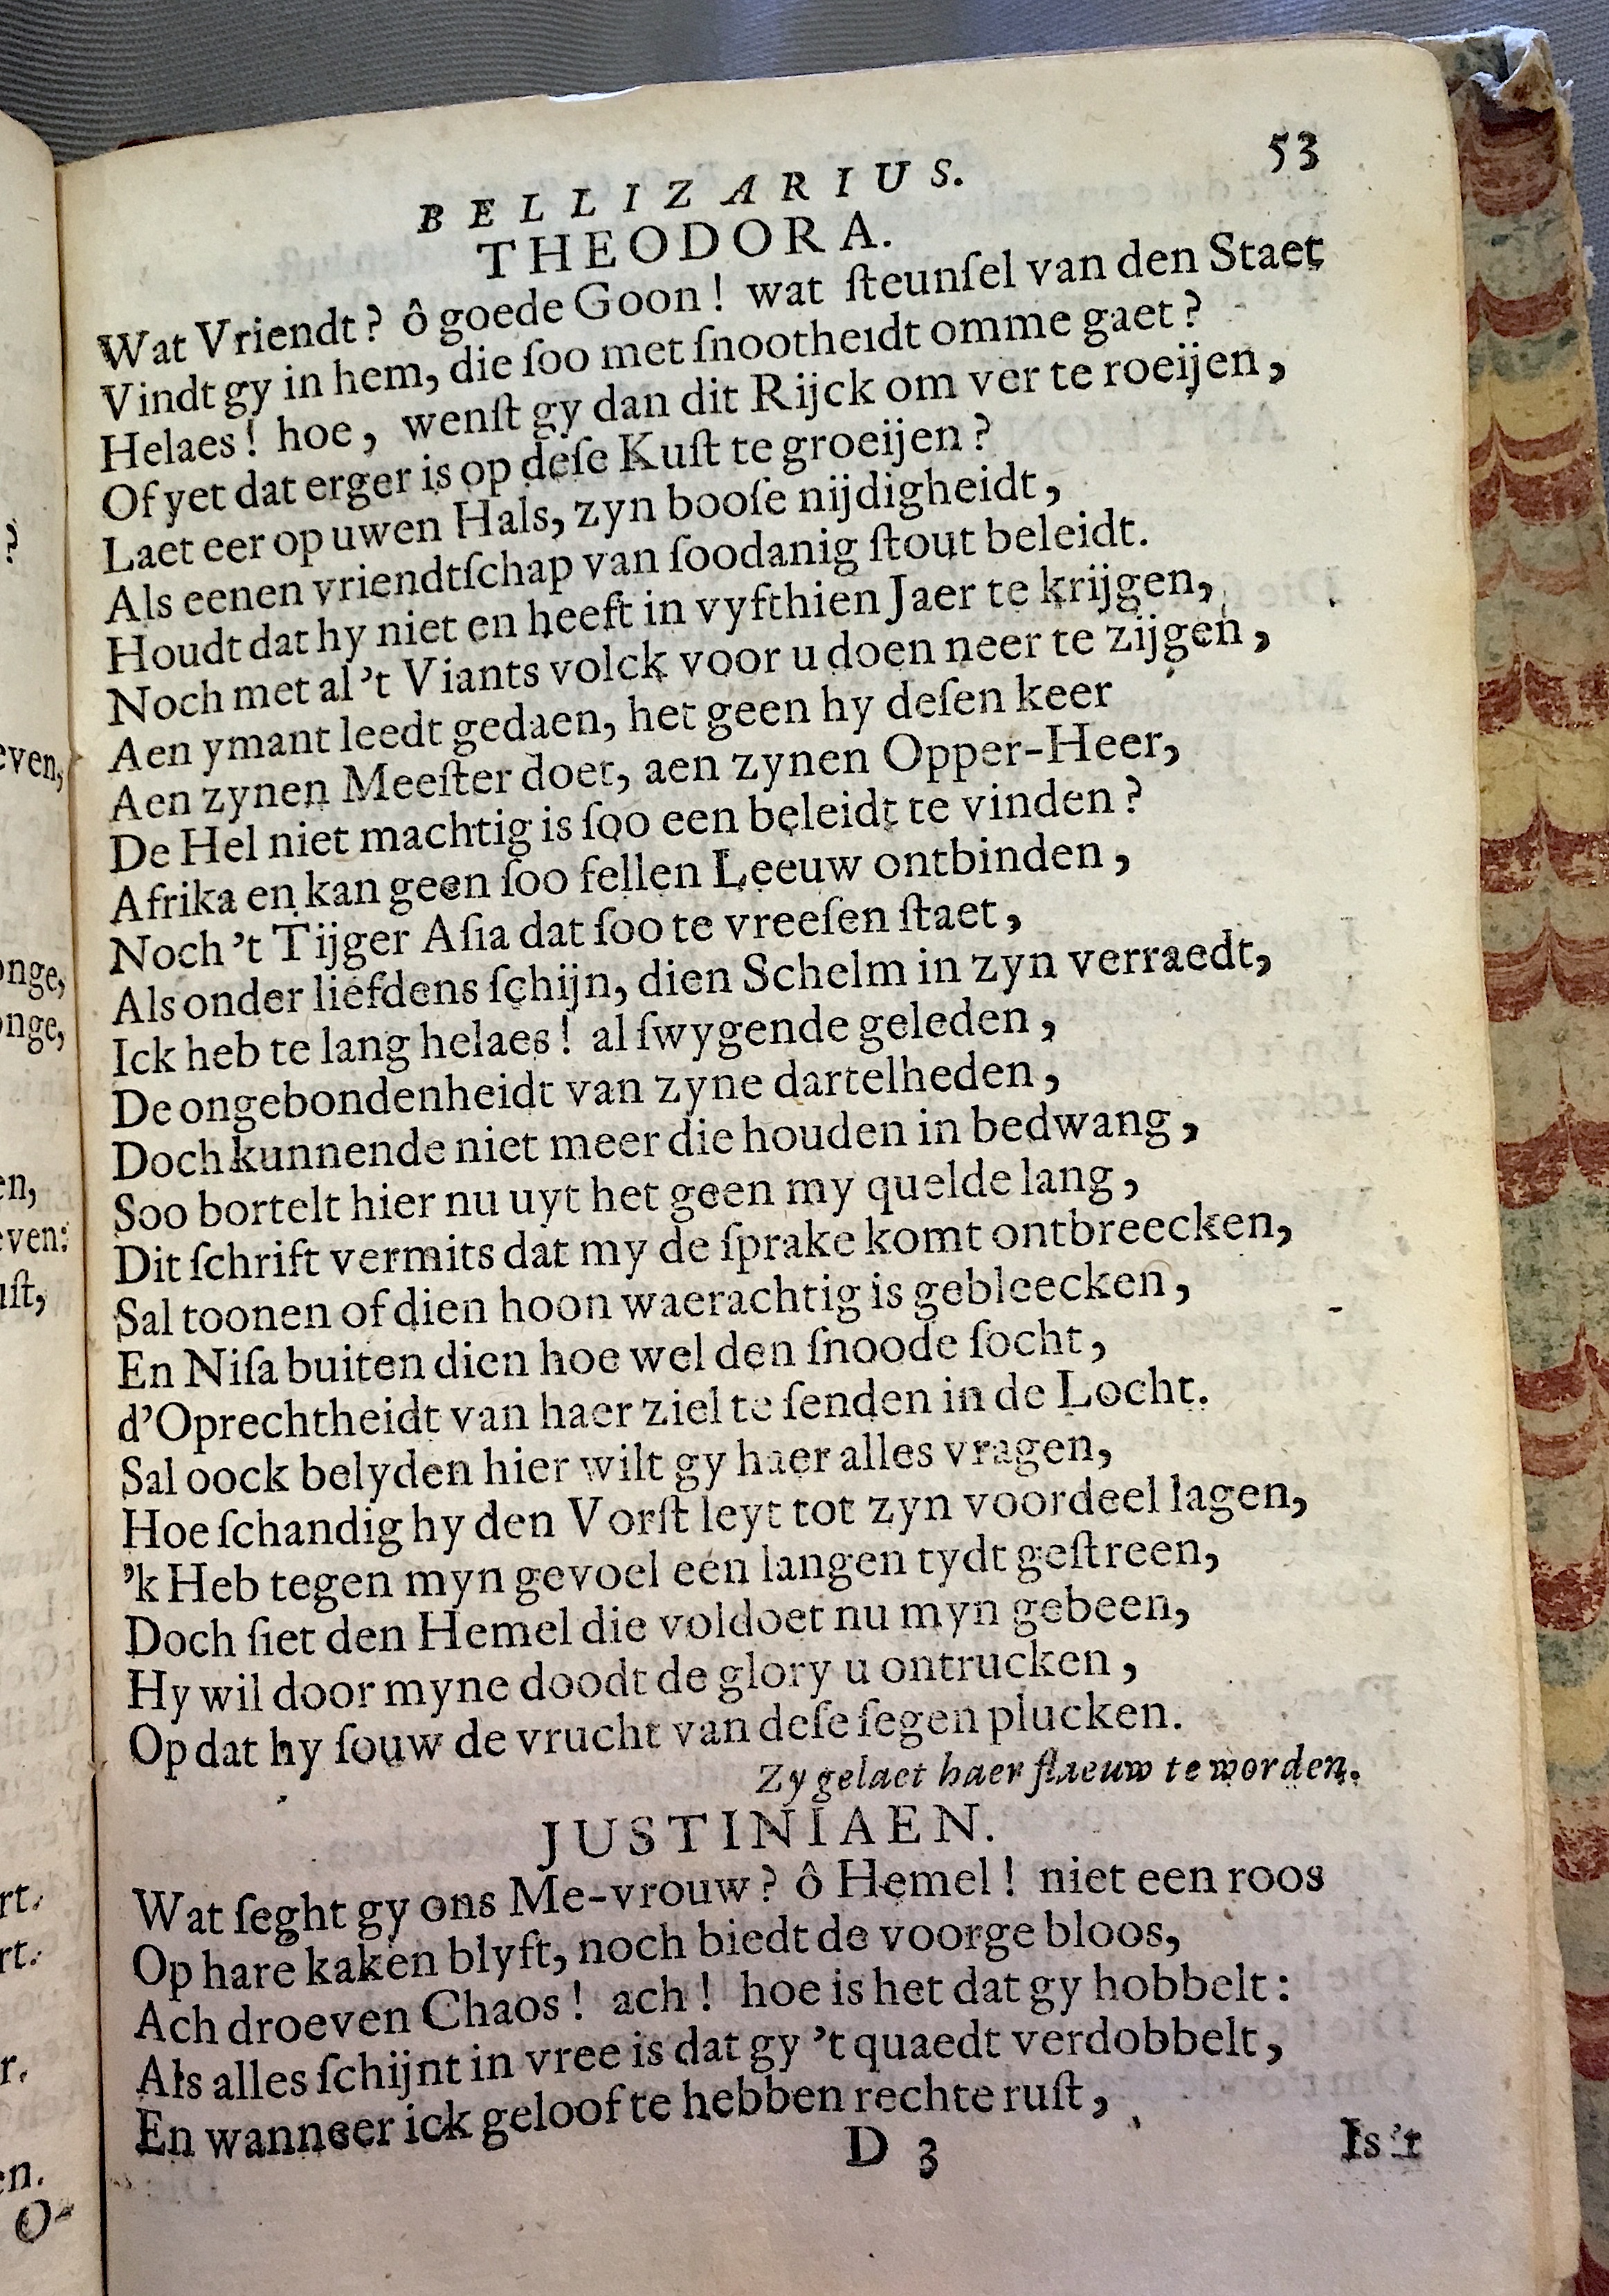 BELLIZARIUS. 53
THEODORA.
Wat Vriendt? ô goede Goon! wat ſteunſel van den Staet
Vindt gy in hem, die ſoo met ſnootheidt omme gaet?
Helaes! hoe, wenſt gy dan dit Rijck om ver te roeijen,
Of yet dat erger is op deſe Kuſt te groeijen?
Laet eer op uwen Hals, zyn booſe nijdigheidt,
Als eenen vriendtſchap van ſoodanig ſtout beleidt.
Houdt dat hy niet en heeft in vyfthien Jaer te krijgen,
Noch met al 't Viants volck voor u doen neer te zijgen,
Aen ymant leedt gedaen, het geen hy deſen keer
Aen zynen Meeſter doet, aen zynen Opper-Heer,
De Hel niet machtig is ſoo een beleidt te vinden?
Afrika en kan geen ſoo fellen Leeuw ontbinden,
Noch 't Tijger Aſia dat ſoo te vreeſen ſtaet,
Als onder liefdens ſchijn, dien Schelm in zyn verraedt,
Ick heb te lang helaes! al ſwygende geleden,
De ongebondenheidt van zyne dartelheden,
Doch kunnende niet meer die houden in bedwang,
Soo bortelt hier nu uyt het geen my quelde lang,
Dit ſchrift vermits dat my de ſprake komt ontbreecken,
Sal toonen of dien hoon waerachtig is gebleecken,
En Niſa buiten dien hoe wel den ſnoode ſocht,
d'Oprechtheidt van haer ziel te ſenden in de Locht.
Sal oock belyden hier wilt gy haer alles vragen,
Hoe ſchandig hy den Vorſt leyt tot zyn voordeel lagen,
'k Heb tegen myn gevoel een langen tydt geſtreen,
Doch ſiet den Hemel die voldoet nu myn gebeen,
Hy wil door myne doodt de glory u ontrucken,
Op dat hy ſouw de vrucht van deſe ſegen plucken.
Zy gelaet haer flaeuw te worden.
JUSTINIAEN.
Wat ſeght gy ons Me-vrouw? ô Hemel! niet een roos
Op hare kaken blyft, noch biedt de voorge bloos,
Ach droeven Chaos! ach! hoe is het dat gy hobbelt:
Als alles ſchijnt in vree is dat gy 't quaedt verdobbelt,
En wanneer ick geloof te hebben rechte ruſt,
D 3 Is 't